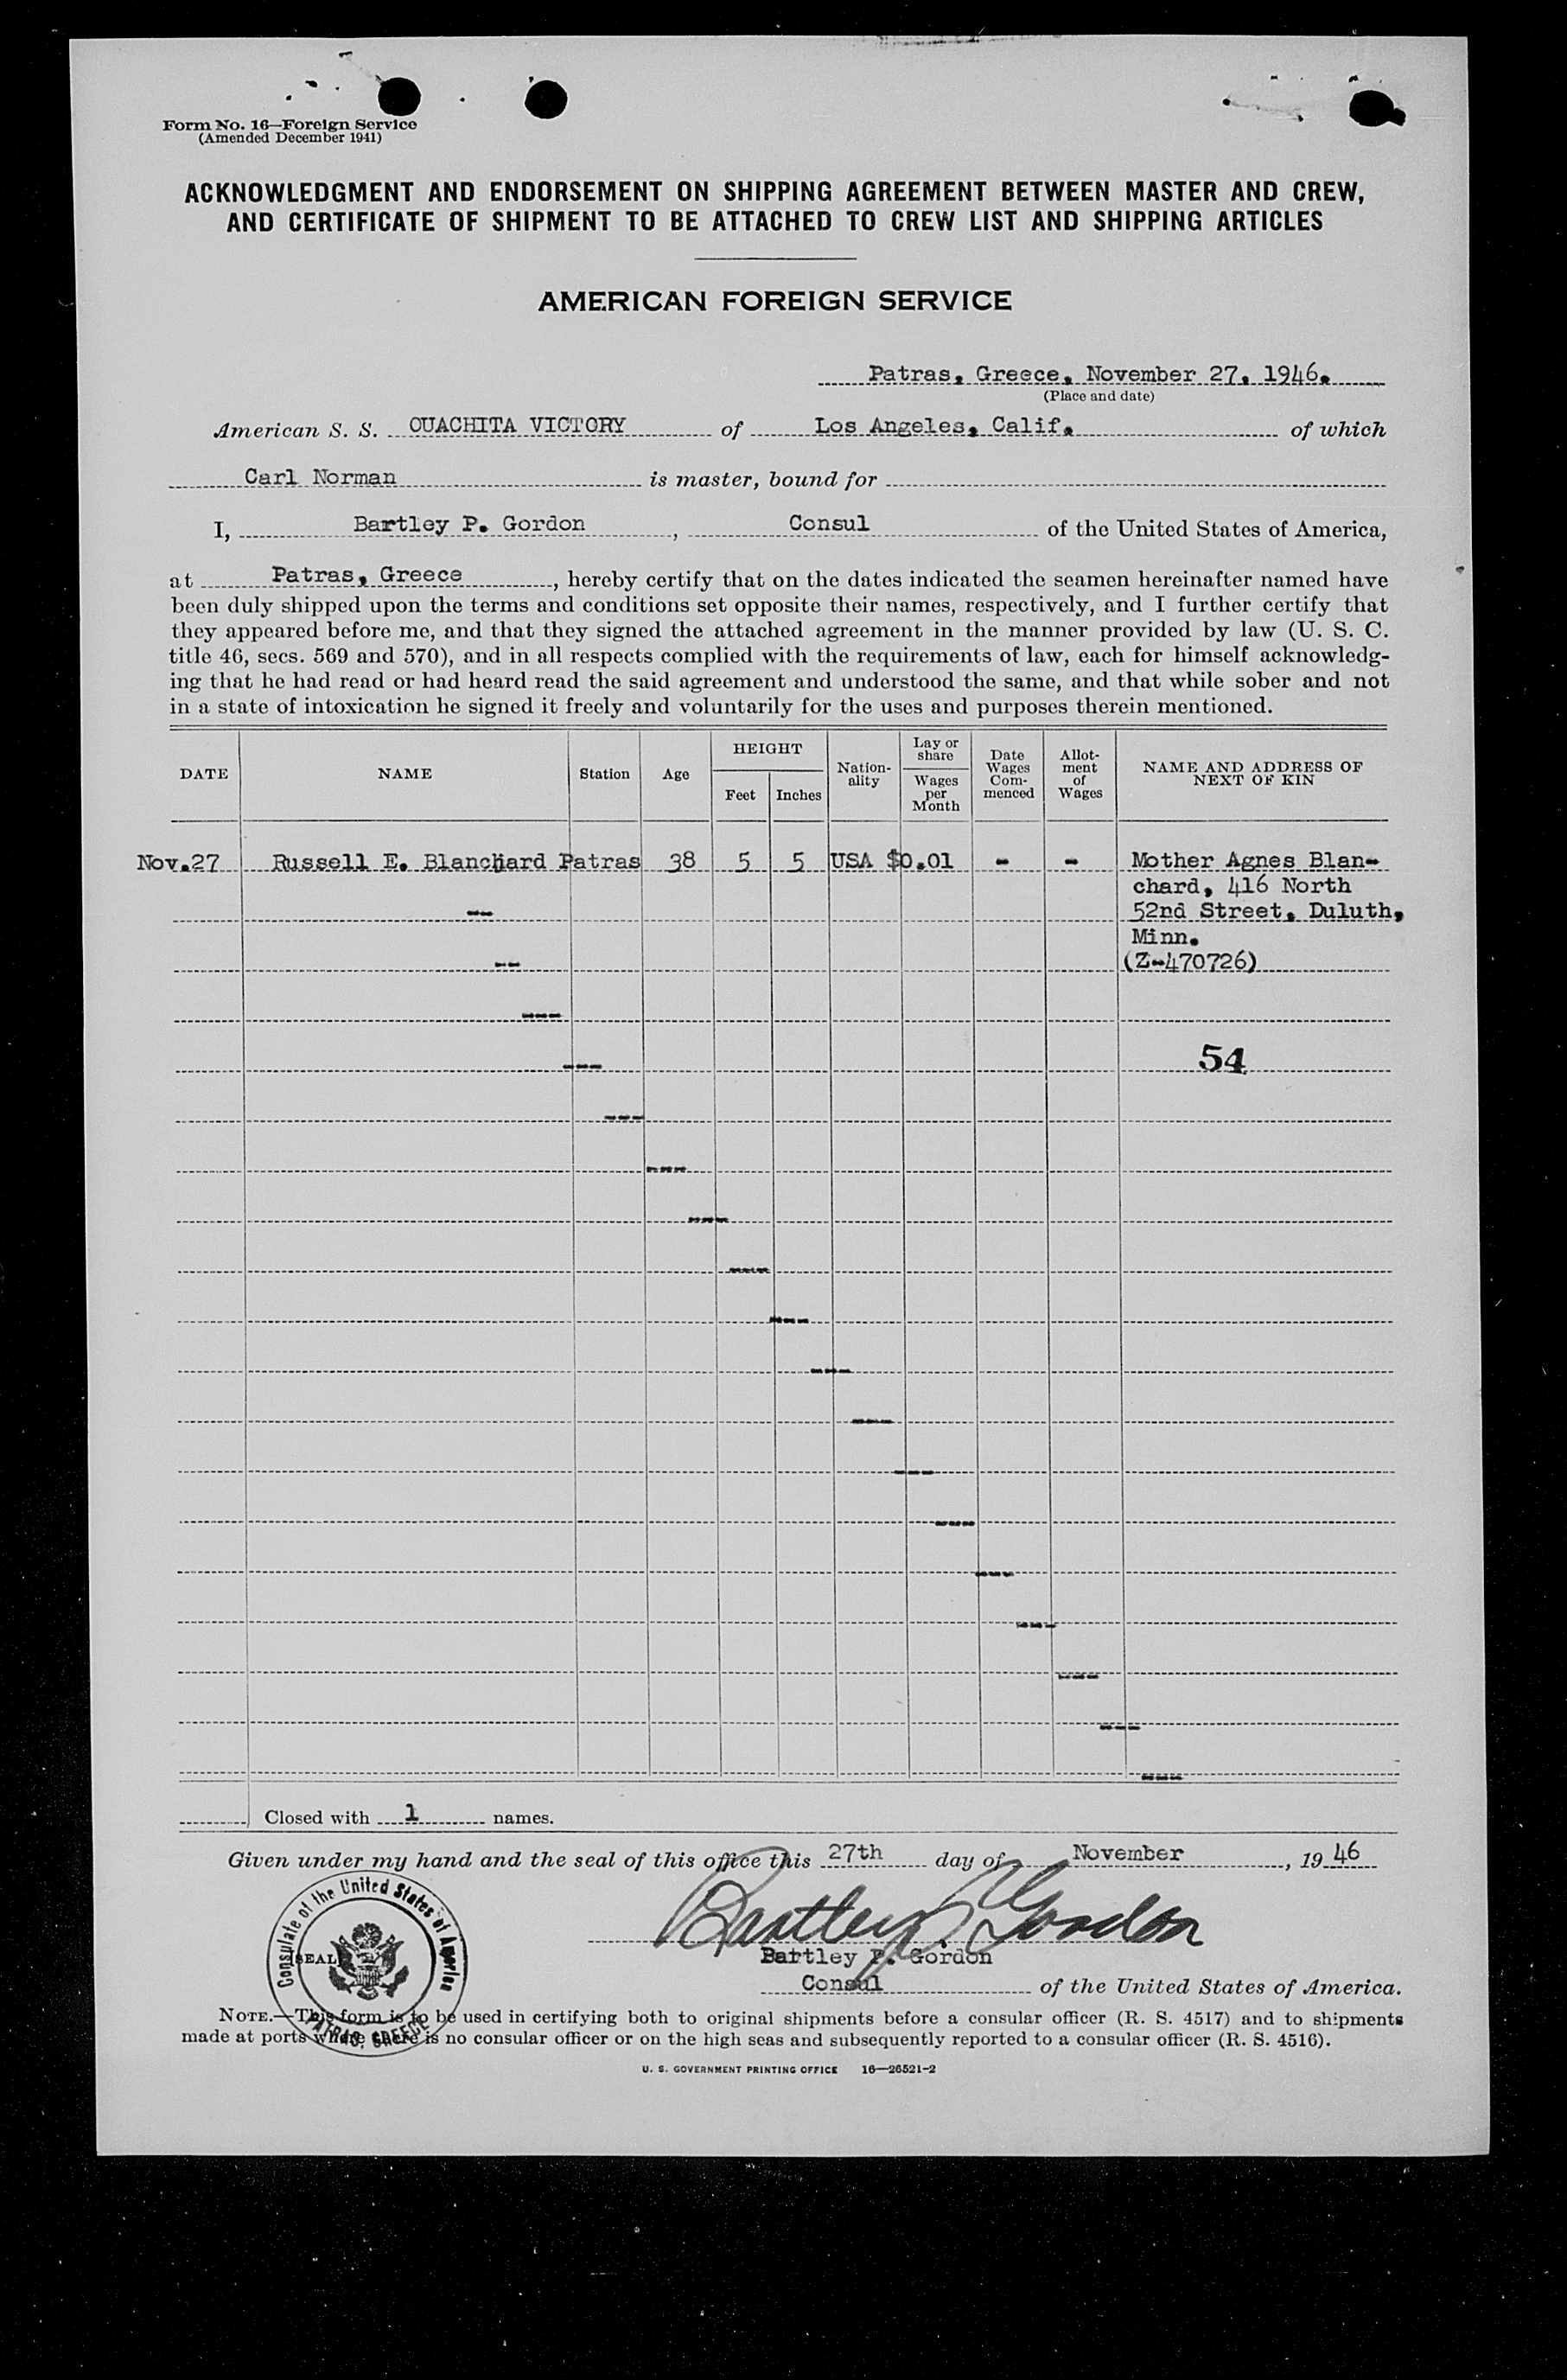 Form No. 16—Foreign Service
(Amended December 1941)
ACKNOWLEDGMENT AND ENDORSEMENT ON SHIPPING AGREEMENT BETWEEN MASTER AND CREW,
AND CERTIFICATE OF SHIPMENT TO BE ATTACHED TO CREW LIST AND SHIPPING ARTICLES
AMERICAN FOREIGN SERVICE
Patras, Greece, November 27, 1946.
(Place and date)
American S. S. OUACHITA VICTORY of Los Angeles, Calif. of which
Carl Norman is master, bound for
I, Bartley P. Gordon, Consul of the United States of America,
at Patras, Greece, hereby certify that on the dates indicated the seamen hereinafter named have
been duly shipped upon the terms and conditions set opposite their names, respectively, and I further certify that
they appeared before me, and that they signed the attached agreement in the manner provided by law (U. S. C.
title 46, secs. 569 and 570), and in all respects complied with the requirements of law, each for himself acknowledg-
ing that he had read or had heard read the said agreement and understood the same, and that while sober and not
in a state of intoxication he signed it freely and voluntarily for the uses and purposes therein mentioned.
DATE NAME Station Age HEIGHT Feet Inches Nation-ality Lay or share Wages per Month Date Wages Com-menced Allot-ment of Wages NAME AND ADDRESS OF NEXT OF KIN
Nov.27 Russell E. Blanchard Patras 38 5 5 USA $0.01 - - Mother Agnes Blan-
chard, 416 North
52nd Street, Duluth,
Minn.
(Z-470726)
54
Closed with 1 names.
Given under my hand and the seal of this office this 27th day of November, 1946
Bartley P. Gordon
Bartley P. Gordon
Consul of the United States of America.
Consulate of the United States of America
(SEAL)
PATRAS, GREECE
NOTE.—This form is to be used in certifying both to original shipments before a consular officer (R. S. 4517) and to shipments
made at ports where there is no consular officer or on the high seas and subsequently reported to a consular officer (R. S. 4516).
U. S. GOVERNMENT PRINTING OFFICE 16—26521-2